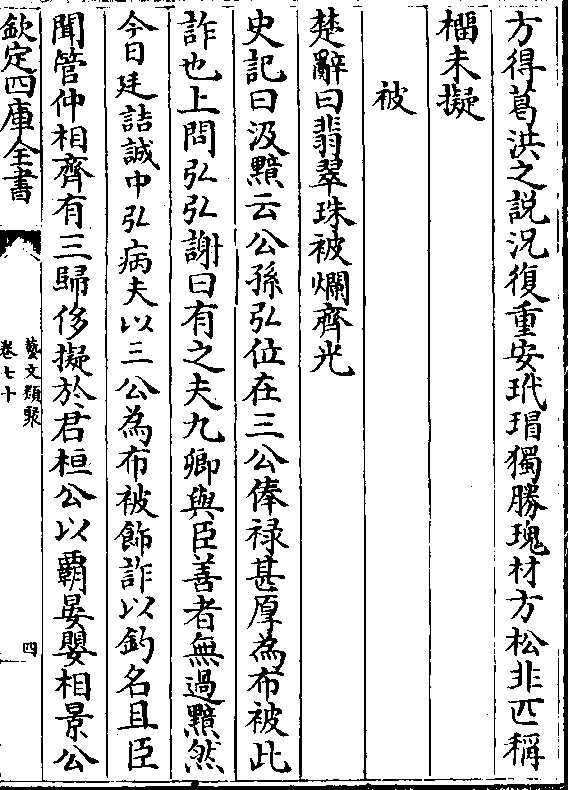 方得葛洪之説況復重安玳瑁獨勝瑰材方松非匹稱
橊未擬
被
楚辭曰翡翠珠被爛齊光
史記曰汲黯云公孫弘位在三公俸禄甚厚為布被此
詐也上問弘弘謝曰有之夫九卿與臣善者無過黯然
今日廷詰誠中弘病夫以三公為布被飾詐以釣名且臣
聞管仲相齊有三歸侈擬於君桓公以霸晏嬰相景公
欽定四庫全書
藝文類聚
卷七十
四